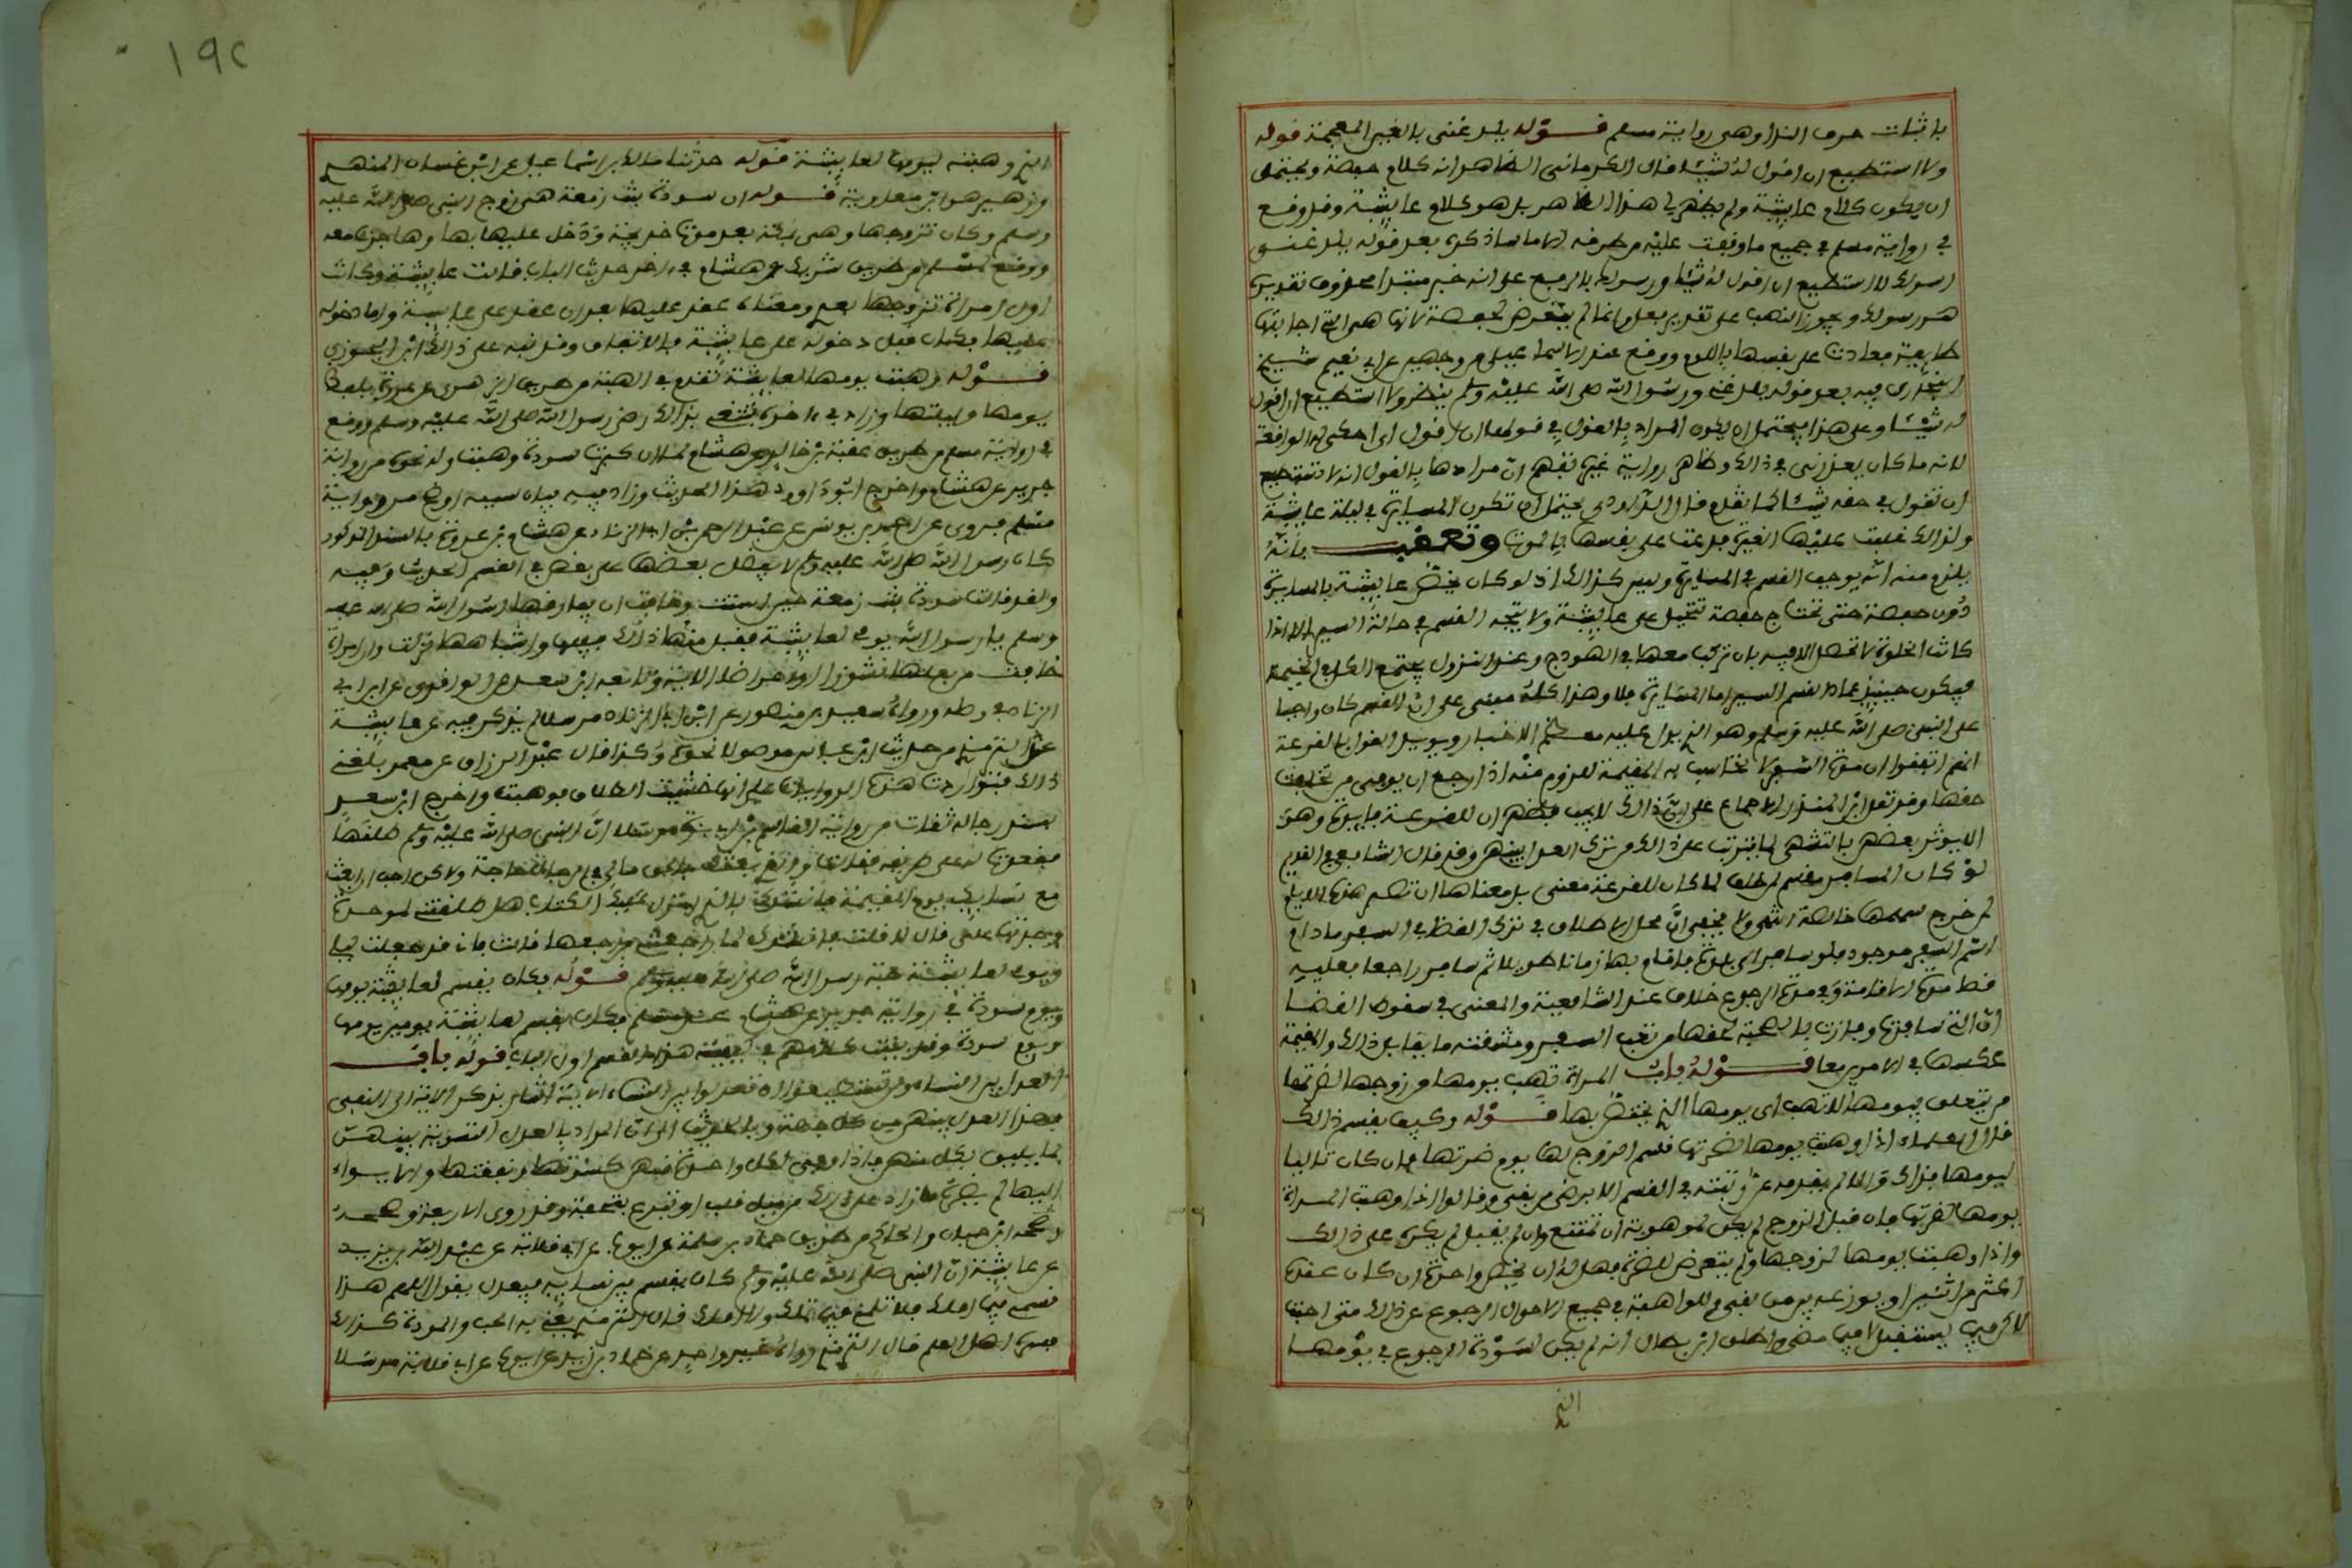 باثبات حرف الندا وهي رواية مسلم قوله يلدغني بالغين المعجمة قوله
ولا استطيع ان اقول له شيئا قال الكرماني الظاهر انه كلام حفصة ويحتمل
ان يكون كلام عايشة ولم يظهر لي هذا الظاهر بل هو كلام عايشة وقد وقع
في رواية مسلم في جميع ما وقفت عليه من طرقه الا ما ساذكره بعد قوله يلدغني
رسولك لا استطيع ان اقول له شيئا ورسولك بالرفع على انه خبر مبتدا محذوف تقديره
هو رسولك ويجوز النصب على تقدير فعل وانما لم يتعرض لحفصة لانها هي التي اجابتها
طايعة فعادت على نفسها باللوم ووقع عند الاسماعيلي من وجهين عن ابي نعيم شيخ
البخاري فيه بعد قوله يلدغني ورسول الله صلى الله عليه وسلم ينظر ولا استطيع ان اقول
له شيئا وعلى هذا فيحتمل ان يكون المراد بالقول في قولها ان اقول اي احكي له الواقعة
لانه ما كان يعذرني في ذالك وظاهر رواية غيره تفهم ان مرادها بالقول انها لا تستطيع
ان تقول في حقه شيئا كما تقدم قال الداودي يحتمل ان تكون المسايرة في ليلة عايشة
ولذالك غلبت عليها الغيرة فدعت على نفسها بالموت وتعقب بانه
يلزم منه انه يوجب القسم في المسايرة وليس كذالك اذ لو كان لما خص عايشة بالمسايرة
دون حفصة حتى تحتاج حفصة تتحيل على عايشة ولا يتجه القسم في حالة السير الا اذا
كانت الخلوة لا تحصل الا فيه بان يركب معها في الهودج وعند النزول يجتمع الكل في الخيمة
فيكون حينيذ عماد القسم السير اما المسايرة فلا وهذا كله مبني على ان القسم كان واجبا
على النبي صلى الله عليه وسلم وهو الذي يدل عليه معظم الاخبار ويويد القول بالقرعة
انهم اتفقوا ان مدة السفر لا تحاسب بها المقيمة
حقها وقد نقل ابن المنذر الاجماع على ان ذالك لا يجب فظهر ان للقرعة فايدة وهو
الا يوثر بعضهن بالتشهي لما يترتب على ذالك من ترك العدل بينهن وقد قال الشافعي في القديم
لو كان المسافر يقسم لمن خلف لما كان للقرعة معنى بل معناها ان تصير هذه الايام
لمن خرج سهمها خالصة انتهى ولا يخفى ان محل الاطلاق في ترك القضا في السفر ما دام
اسم السفر موجودا فلو سافر الى بلدة فاقام بها زمانا طويلا ثم سافر راجعا فعليه
قضا مدة الاقامة وفي مدة الرجوع خلاف عند الشافعية والمعنى في سقوط القضا
ان التي سافرت وفازت بالصحبة لحقها من تعب السفر ومشقته ما يقابل ذالك والمقيمة
عكسها في الامرين معا قوله باب المراة تهب يومها من زوجها لضرتها
من يتعلق بيومها لا تهب اي يومها الذي يختص بها قوله وكيف يقسم ذالك
قال العلماء اذا وهبت يومها لضرتها قسم الزوج لها يوم ضرتها فان كان تاليا
ليومها فذاك والا لم يقدمه عن رتبته في القسم الا برضى من بقي وقالوا اذا وهبت المراة
يومها لضرتها فان قبل الزوج لم يكن للموهوبة ان تمتنع وان لم يقبل لم يكره على ذالك
واذا وهبت يومها لزوجها ولم يتعرض للضرة فهل له ان يخص واحدة ان كان عنده
اكثر من اثنتين او يوزعه بين من بقي وللواهبة في جميع الاحوال الرجوع عن ذالك متى احبت
لاكن فيما يستقبل لا فيما مضى واطلق ابن بطال انه لم يكن لسودة الرجوع في يومها
الذي
١٩٢
الذي وهبته ليومها لعايشة قوله حدثنا مالك بن اسماعيل هو ابن غسان النهدي
وزهير هو ابن معاوية قوله ان سودة بنت زمعة هي زوج النبي صلى الله عليه
وسلم وكان تزوجها وهي بمكة بعد موت خديجة ودخل عليها بها وهاجرت معه
ووقع لمسلم من طريق شريك عن هشام في اخر حديث الباب قالت عايشة وكانت
اول امراة تزوجها بعدي ومعناه عقد عليها بعد ان عقد على عايشة واما دخوله
عليها فكان قبل دخوله على عايشة بالاتفاق وقد نبه على ذالك ابن الجوزي
قوله وهبت يومها لعايشة تقدم في الهبة من طريق الزهري عن عروة بلفظ
يومها وليلتها وزاد في اخره تبتغي بذالك رضى رسول الله صلى الله عليه وسلم ووقع
في رواية مسلم من طريق عقبة بن خالد عن هشام لما ان كبرت سودة وهبت وله نحوه من رواية
جرير عن هشام واخرج ابو داود هذا الحديث وزاد فيه بيان سببه اوضح من رواية
مسلم فروى عن احمد بن يونس عن عبد الرحمن بن ابي الزناد عن هشام بن عروة بالسند المذكور
كان رسول الله صلى الله عليه وسلم لا يفضل بعضنا على بعض في القسم الحديث وفيه
ولقد قالت سودة بنت زمعة حين اسنت وخافت ان يفارقها رسول الله صلى الله عليه
وسلم يا رسول الله يومي لعايشة فقبل منها ذالك ففيها واشباهها نزلت وان امراة
خافت من بعلها نشوزا او اعراضا الاية وتابعه ابن سعد عن الواقدي عن ابن ابي
الزناد في وصله ورواه سعيد بن منصور عن ابن ابي الزناد مرسلا لم يذكر فيه عن عايشة
وعند الترمذي من حديث ابن عباس موصولا نحوه وكذا قال عبد الرزاق عن معمر بلغني
ذالك فتواردت هذه الروايات على انها خشيت الطلاق فوهبت واخرج ابن سعد
بسند رجاله ثقات من رواية القاسم بن ابي بزة مرسلا ان النبي صلى الله عليه وسلم طلقها
فقعدت له على طريقه فقالت والذي بعثك بالحق ما لي في الرجال حاجة ولاكن احب ان ابعث
مع نسايك يوم القيمة فانشدك بالذي انزل عليك الكتاب هل طلقتني لموجدة
وجدتها علي قال لا قالت فانشدك لما راجعتني فراجعها قالت فاني قد جعلت ليلتي
ويومي لعايشة حبة رسول الله صلى الله عليه وسلم قوله فكان يقسم لعايشة يومها
ويوم سودة في رواية جرير عن هشام عند مسلم فكان يقسم لعايشة يومين يومها
ويوم سودة وقد بينت كلامهم في كيفية هذا القسم اول الباب قوله باب
العدل بين النسا ولن تستطيعوا ان تعدلوا بين النساء الاية اشار بذكر الاية الى ان المنفي
فيها العدل بينهن من كل جهة وبالحديث الى ان المراد بالعدل التسوية بينهن
بما يليق بكل منهن فاذا وفى لكل واحدة منهن كسوتها ونفقتها والايواء
اليها لم يضره ما زاد على ذالك من ميل قلب او تبرع بتحفة وقد روى الاربعة وصححه
ابن حبان والحاكم من طريق حماد بن سلمة عن ايوب عن ابي قلابة عن عبد الله بن يزيد
عن عايشة ان النبي صلى الله عليه وسلم كان يقسم بين نسايه فيعدل يقول اللهم هذا
قسمي فيما املك فلا تلمني فيما تملك ولا املك قال الترمذي يعني به الحب والمودة كذالك
فسره اهل العلم قال الترمذي رواه غير واحد عن حماد بن زيد عن ايوب عن ابي قلابة مرسلا